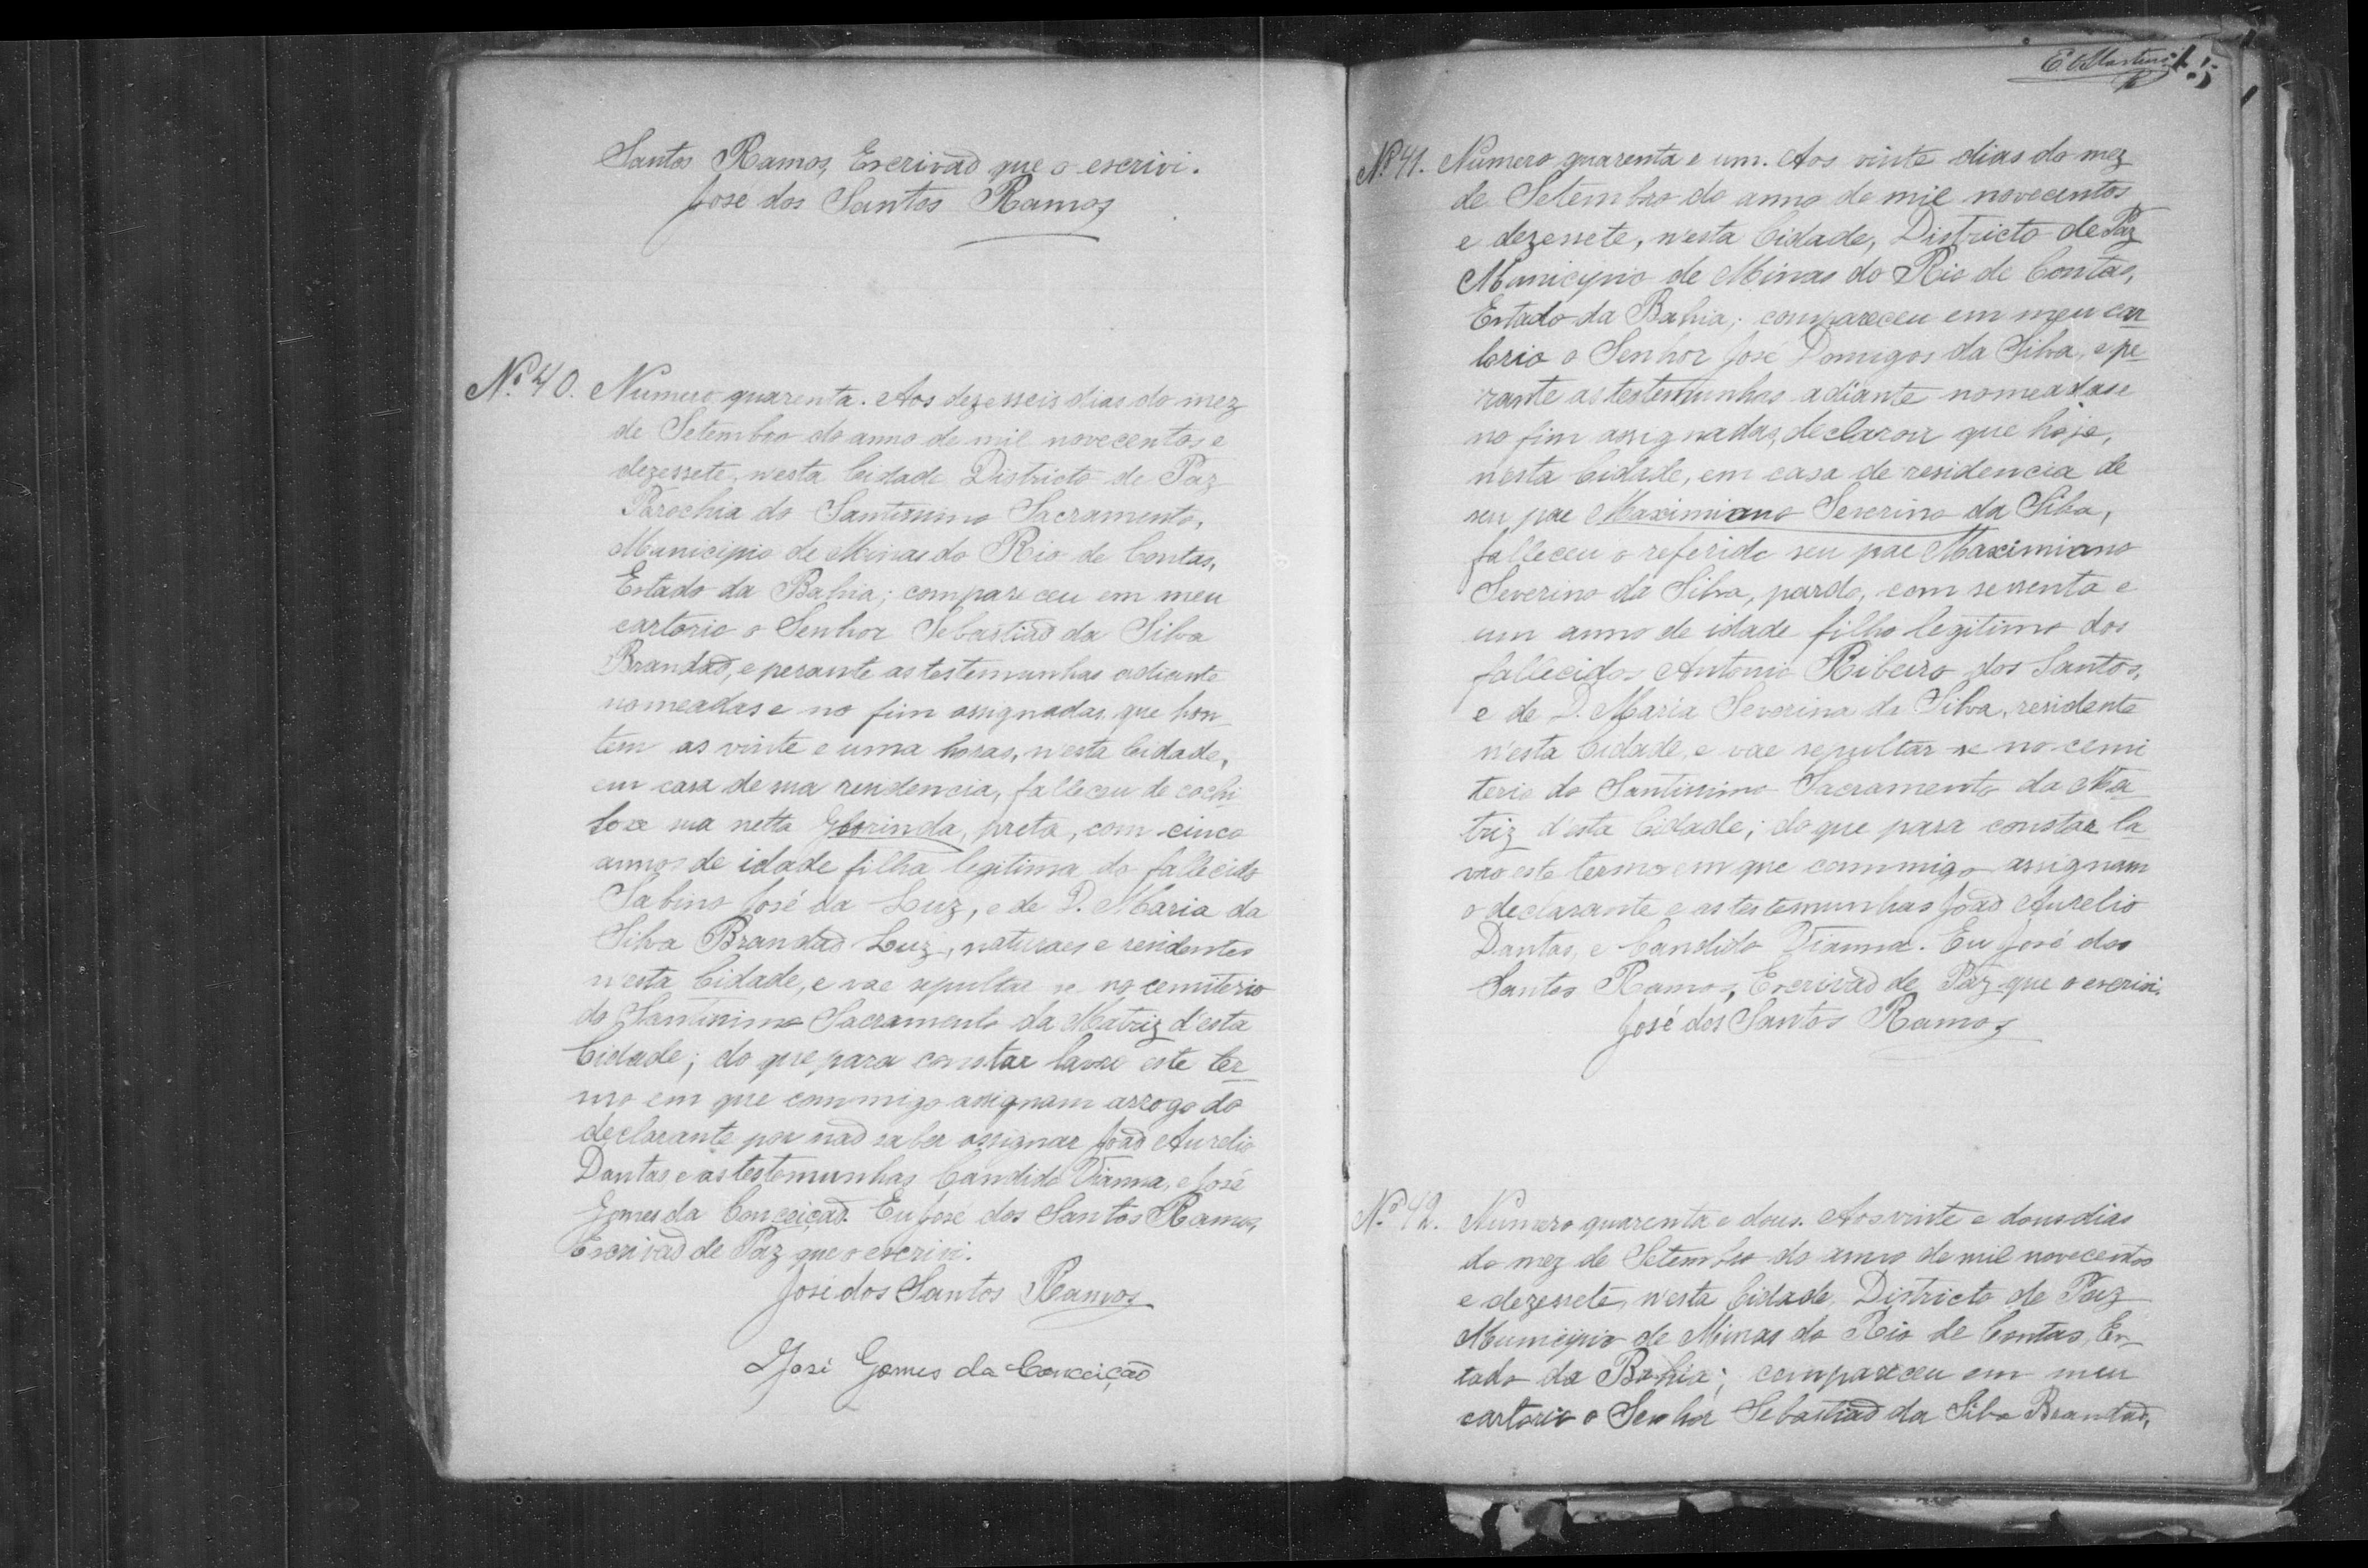 Santos Ramos, Escrivaõ que o escrivi.
José dos Santos Ramos
Nº 40. Numero quarenta. Aos dezesseis dias do mez
de Setembro do anno de mil novecentos e
dezessete, n'esta Cidade Districto de Paz
Parochia do Santissimo Sacramento,
Municipio de Minas do Rio de Contas,
Estado da Bahia; compareceu em meu
cartorio o Senhor Sebastiaõ da Silva
Brandaõ, e perante as testemunhas adiante
nomeadas e no fim assignadas, que hon
tem as vinte e uma horas, n'esta Cidade,
em casa de sua residencia, falleceu de cochi
loxe sua netta Florinda, preta, com cinco
annos de idade filha legitima do fallecido
Sabino José da Luz, e de D. Maria da
Silva Brandaõ Luz, naturaes e residentes
n'esta Cidade, e vae sepultar se no cemiterio
do Santissimo Sacramento da Matriz d'esta
Cidade; do que para constar lavrei este ter
mo em que commigo assignam arrogo do
declarante por naõ saber assignar Joaõ Aurelio
Dantas e as testemunhas Candido Vianna, e José
Gomes da Conceiçaõ. Eu José dos Santos Ramos,
Escrivaõ de Paz que o escrivi.
José dos Santos Ramos
José Gomes da Conceição
E. Martins 15
Nº 41. Numero quarenta e um. Aos vinte dias do mez
de Setembro do anno de mil novecentos
e dezessete, n'esta Cidade, Districto de Paz
Municipio de Minas do Rio de Contas,
Estado da Bahia; compareceu em meu car
torio o Senhor José Domigos da Silva, e pe
rante as testemunhas adiante nomeadas e
no fim assignadas, declarou que hoje,
nesta Cidade, em casa de residencia de
seu pae Maximiano Severino da Silva,
falleceu o referido seu pae Maximiano
Severino da Silva, pardo, com sessenta e
um anno de idade filho legitimo dos
fallecidos Antonio Ribeiro dos Santos,
e de D. Maria Severina da Silva, residente
n'esta Cidade, e vae sepultar-se no cemi
terio do Santissimo Sacramento da Ma
triz d'esta Cidade; do que para constar la
vro este termo em que commigo assignam
o declarante e as testemunhas Joaõ Aurelio
Dantas, e Candido Vianna. Eu José dos
Santos Ramos, Escrivaõ de Paz que o escrivi.
José dos Santos Ramos
Nº 42. Numero quarenta e dous. Aos vinte e dous dias
do mez de Setembro do anno de mil novecentos
e dezessete, n'esta Cidade, Districto de Paz
Municipio de Minas do Rio de Contas, Es
tado da Bahia; compareceu em meu
cartorio o Senhor Sebastiaõ da Silva Brandaõ,